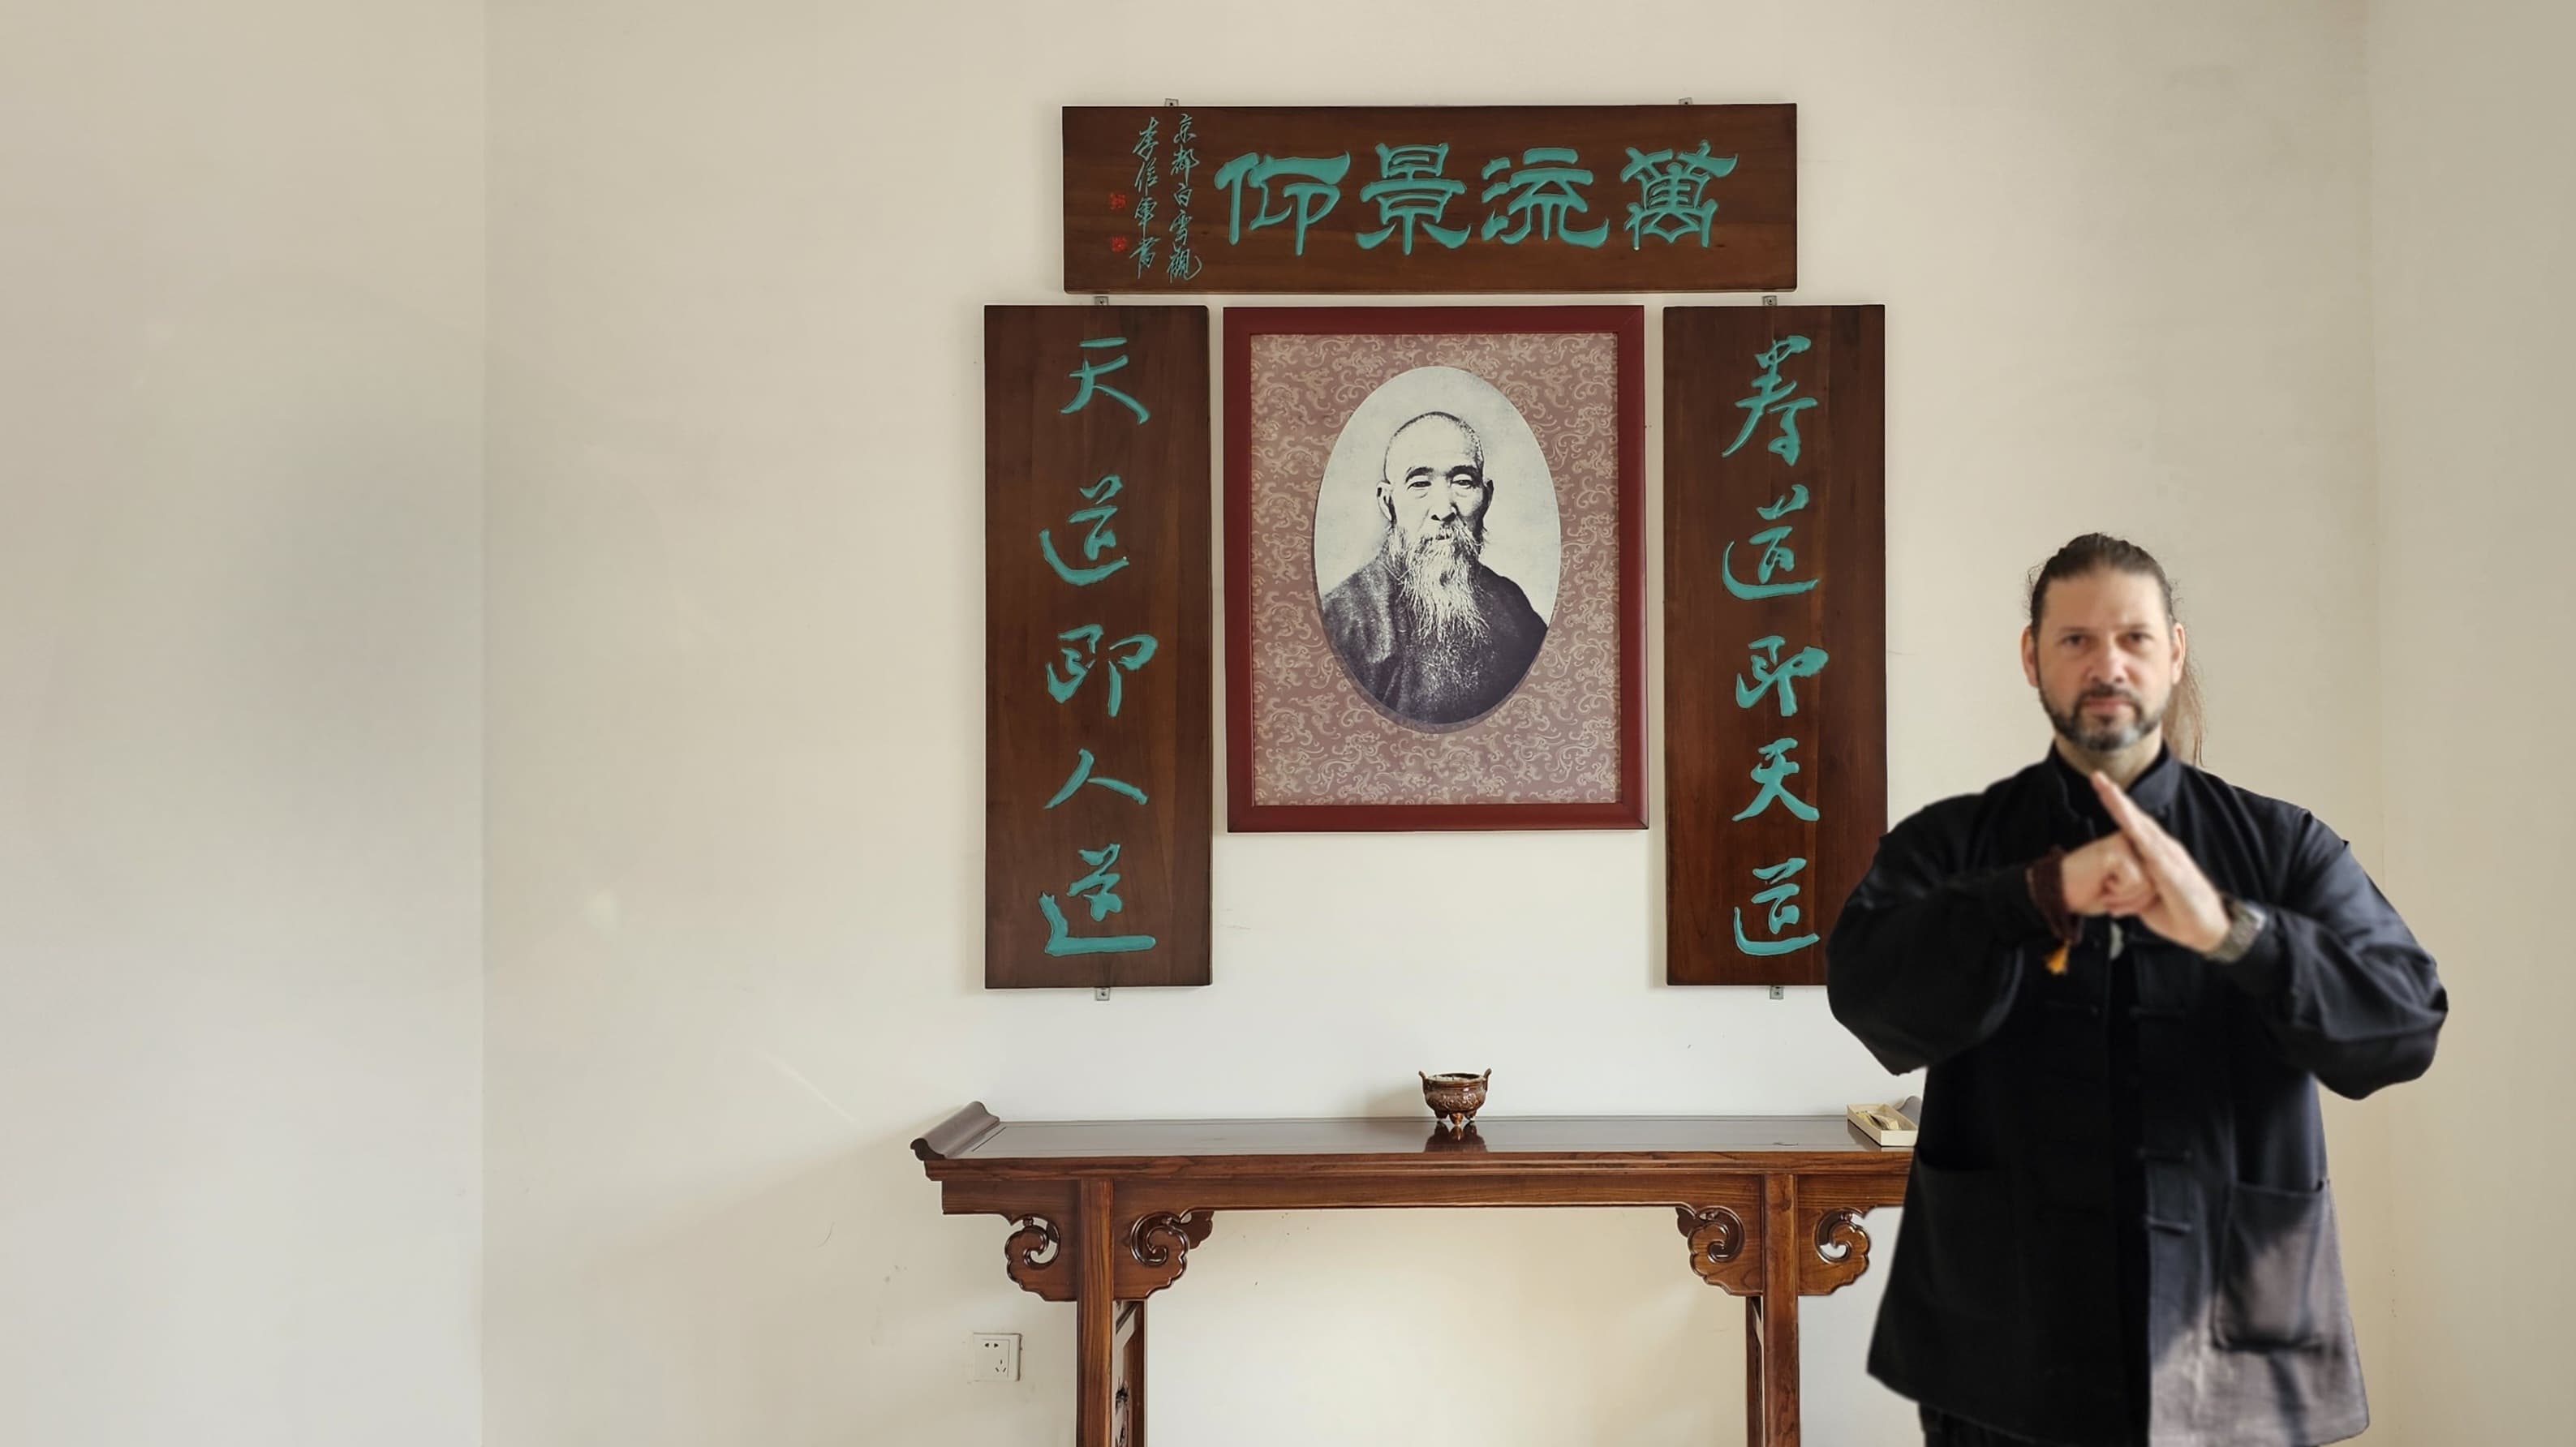 萬流景仰
京都白雲觀
李信軍書
拳道即天道
天道即人道